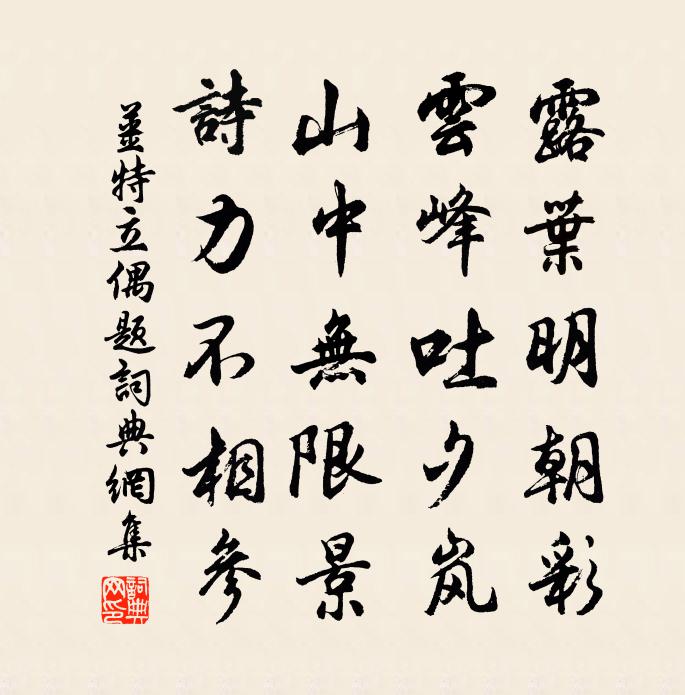 露葉明朝彩
雲峰吐夕岚
山中無限景
詩力不相參
薑特立偶題詞典網集
詞典网印